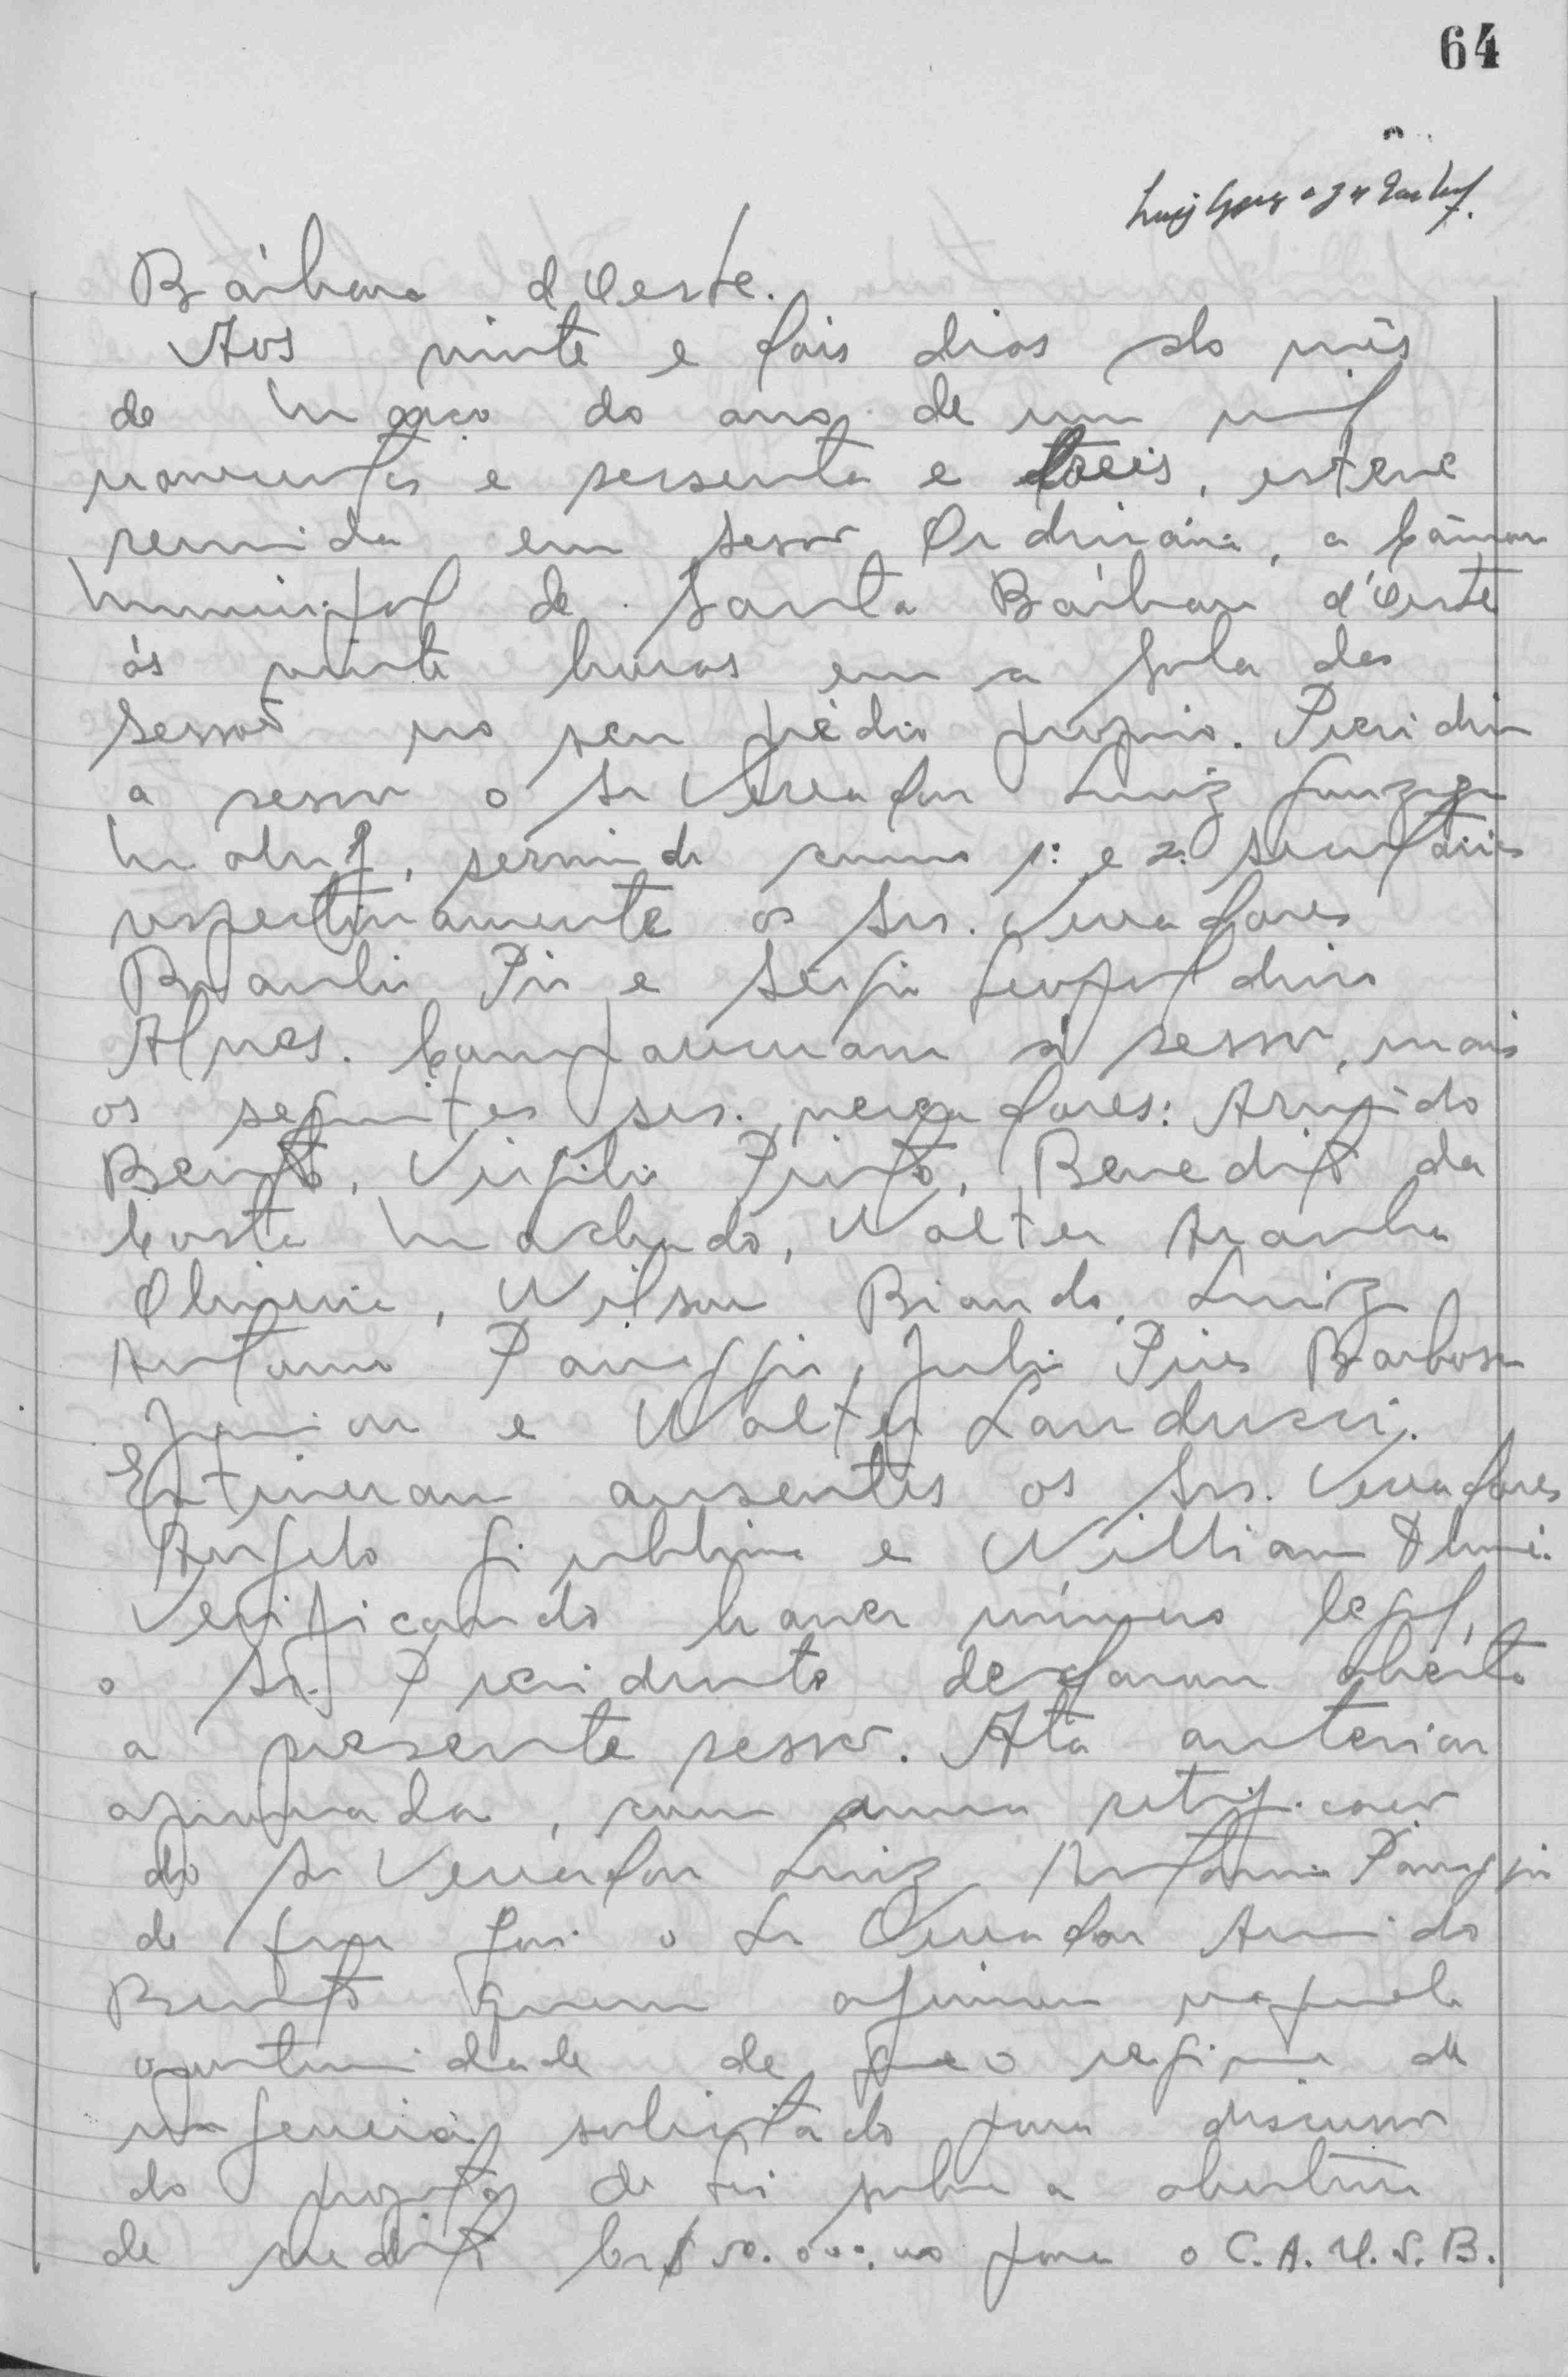 64
Bárbara d'Oeste.
Aos vinte e dois dias do mês
de Março do ano de um mil
novecentos e sessenta e treis, esteve
reunida em sessão Ordinária, a Câmara
Municipal de Santa Bárbara d'Oeste
ás vinte horas em a sala das
Sessões no seu prédio proprio. Presidiu
a sessão o Sr Vereador Luiz Gonzaga
servindo como 1º e 2º secretários
respectivamente os Srs. Vereadores
Braulio Pio e Sérgio Leopoldino
Alves. Compareceram à sessão, mais
os seguintes srs. vereadores: Armindo
Bento, Virgilio Pinto, Benedito da
Costa Machado, Walter Aranha
Oliveira, Wilson Biondo, Luiz
Antonio Panaggio, Julio Pires Barbosa
Junior e Walter Landucci.
Estiveram ausentes os Srs. Vereadores
Angelo Giubbina e William
Verificando haver número legal,
o Sr. Presidente declarou aberta
a presente sessão. Ata anterior
aprovada, com uma retificação
do Sr Vereador Luiz Antonio Panaggio
de que foi o Sr Vereador Armindo
Bento quem afirmou naquela
oportunidade de que o regime de
urgencia solicitado para discussão
do projeto de Lei sobre a abertura
de credito Cr$ 50.000,00 para o C.A.U.S.B.